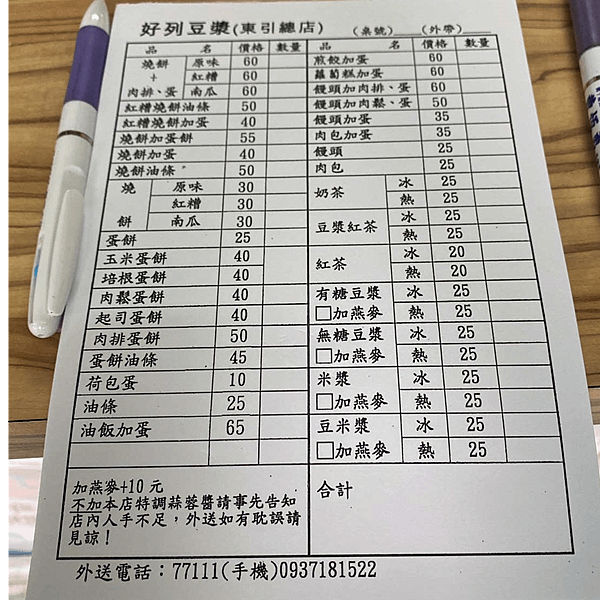 好列豆漿(東引總店) (桌號) (外帶)
品名 價格 數量 品名 價格 數量
燒餅 原味 60 煎餃加蛋 60
+ 紅糟 60 蘿蔔糕加蛋 60
肉排、蛋 南瓜 60 饅頭加肉排、蛋 60
紅糟燒餅油條 50 饅頭加肉鬆、蛋 50
紅糟燒餅加蛋 40 饅頭加蛋 35
燒餅加蛋餅 55 肉包加蛋 35
燒餅加蛋 40 饅頭 25
燒餅油條 50 肉包 25
燒餅 原味 30 奶茶 冰 25
紅糟 30 熱 25
南瓜 30 豆漿紅茶 冰 25
蛋餅 25 熱 25
玉米蛋餅 40 紅茶 冰 20
培根蛋餅 40 熱 20
肉鬆蛋餅 40 有糖豆漿 冰 25
起司蛋餅 40 □加燕麥 熱 25
肉排蛋餅 50 無糖豆漿 冰 25
蛋餅油條 45 □加燕麥 熱 25
荷包蛋 10 米漿 冰 25
油條 25 □加燕麥 熱 25
油飯加蛋 65 豆米漿 冰 25
□加燕麥 熱 25
加燕麥+10元 合計
不加本店特調蒜蓉醬請事先告知
店內人手不足，外送如有耽誤請
見諒！
外送電話：77111(手機)0937181522